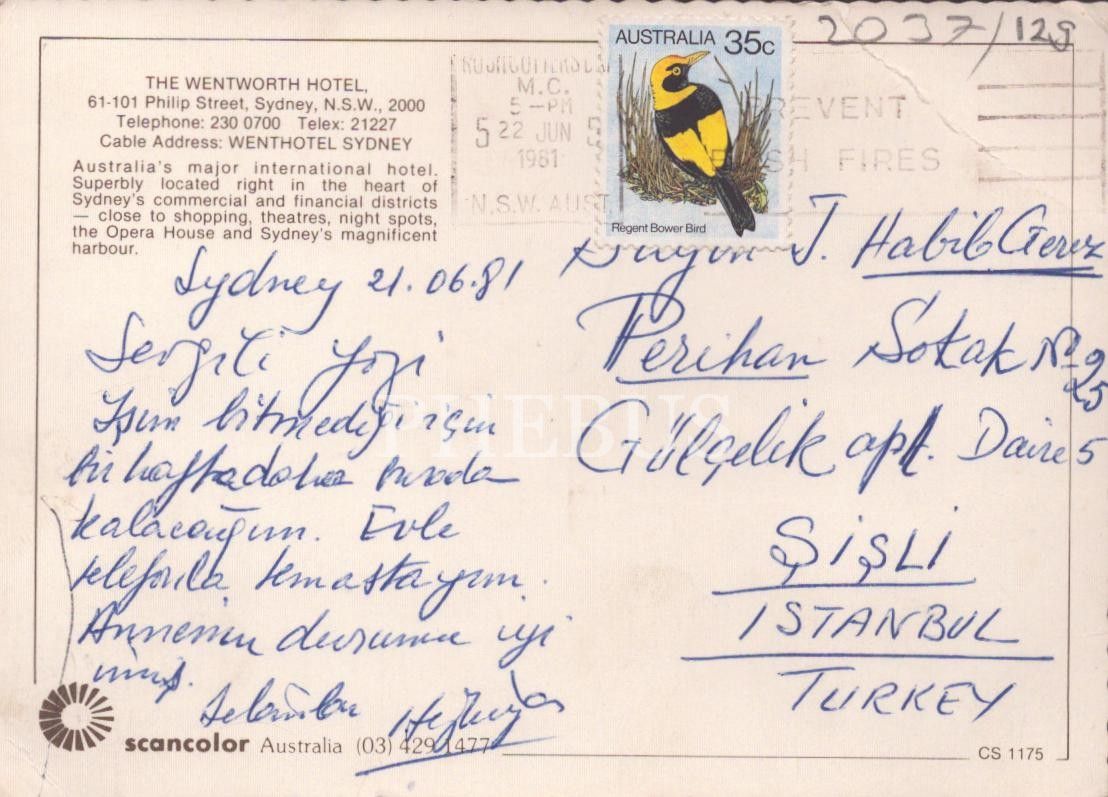 2037/129
THE WENTWORTH HOTEL,
61-101 Philip Street, Sydney, N.S.W., 2000
Telephone: 230 0700 Telex: 21227
Cable Address: WENTHOTEL SYDNEY
Australia's major international hotel.
Superbly located right in the heart of
Sydney's commercial and financial districts
— close to shopping, theatres, night spots,
the Opera House and Sydney's magnificent
harbour.
M.C.
5-PM
5 22 JUN 5
1981
N.S.W. AUST.
AUSTRALIA 35c
Regent Bower Bird
PREVENT
FIRES
Sydney 21.06.81
Sevgili Jozi
İşim bitmediği için
bir hafta daha burada
kalacağım. Evle
telefonla temastayım.
Annemin durumu iyi
imiş.
Selamlar
J. Habib Gerez
Perihan Sokak No 9
25
Gülçelik apt. Daire 5
ŞİŞLİ
ISTANBUL
TURKEY
PHEBUS
scancolor Australia (03) 429 1477
CS 1175